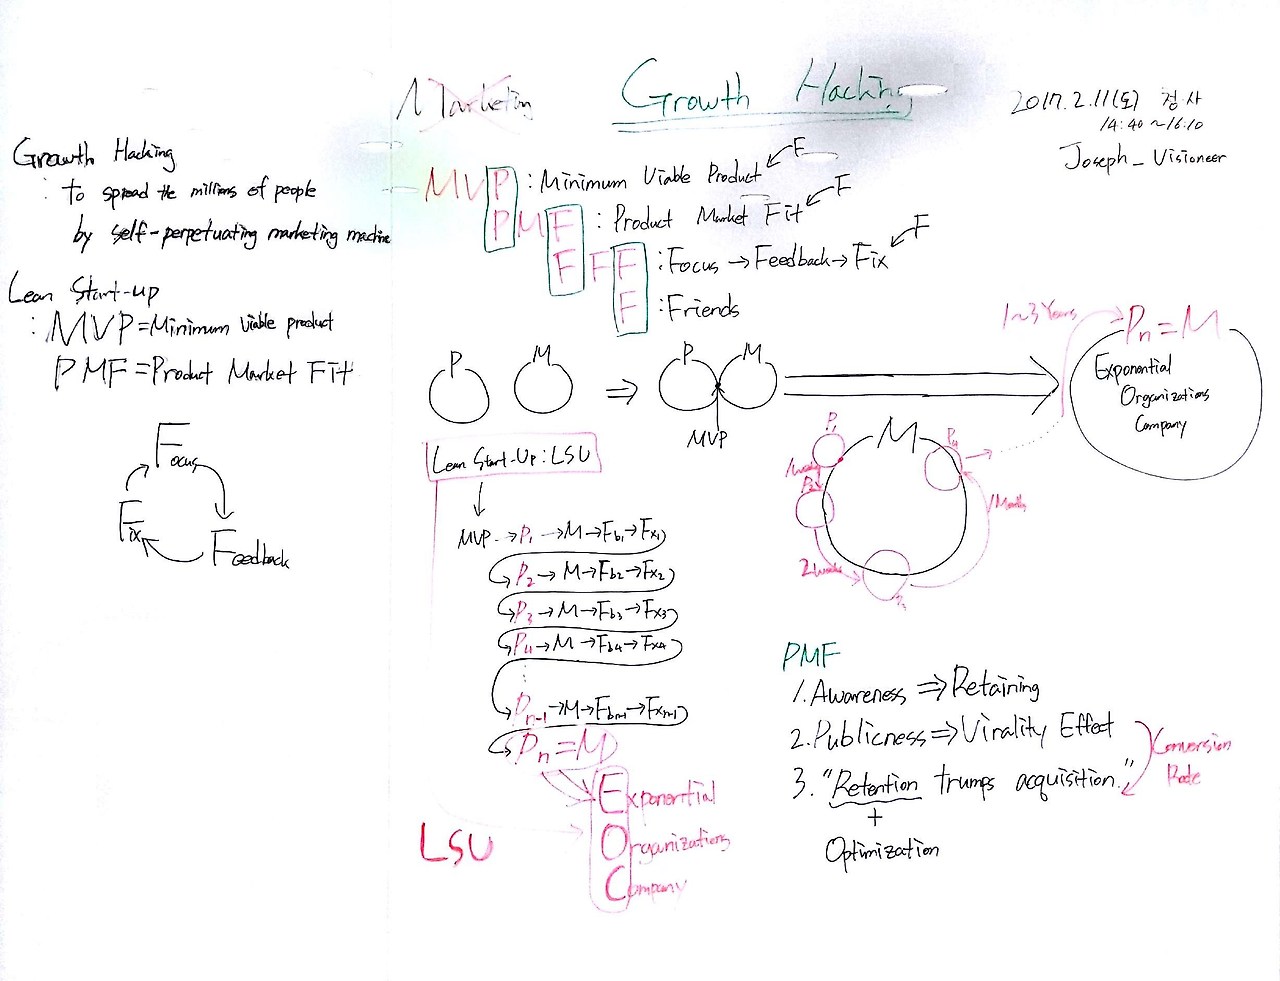 Marketing
Growth Hacking
2017.2.11(토) 정사
14:40~16:10
Joseph_Visioneer
Growth Hacking
: to spread the millions of people
by self-perpetuating marketing machine
Lean Start-up
: MVP=Minimum Viable product
PMF=Product Market Fit
Focus
Feedback
Fix
MVP : Minimum Viable Product F
PMF : Product Market Fit F
FFF : Focus → Feedback → Fix F
F : Friends
P M ⇒ P M
MVP
1~3 Years
Pn=M
Exponential
Organizations
Company
Lean Start-Up : LSU
MVP → P1 → M → Fb1 → Fx1
P2 → M → Fb2 → Fx2
P3 → M → Fb3 → Fx3
P4 → M → Fb4 → Fx4
Pn-1 → M → Fbn-1 → Fxn-1
Pn = M
Exponential
Organizations
Company
LSU
M
P1
P2
2 weeks
P3
1 Month
P4
PMF
1. Awareness ⇒ Retaining
2. Publicness ⇒ Virality Effect
3. "Retention trumps acquisition."
+
Optimization
Conversion
Rate